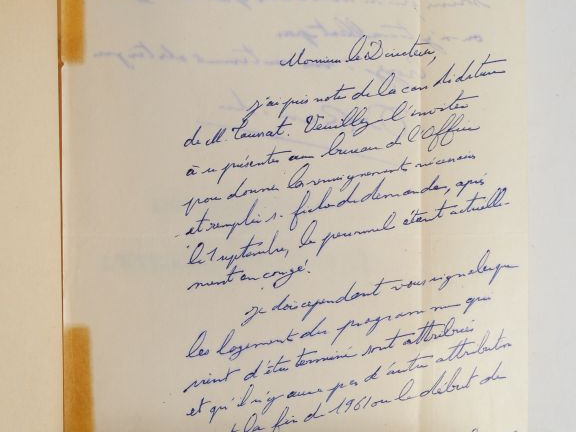 Monsieur le Directeur,
j'ai pris note de la candidature
de M. Toussat. Veuillez l'inviter
à se présenter au bureau de l'Office
pour donner les renseignements nécessaires
et remplir s. fiche de demande, après
le 1 septembre, le personnel étant actuelle-
ment en congé.
Je dois cependant vous signaler que
les logements du programme qui
vient d'être terminé sont attribués
et qu'il n'y aura pas d'autre attribution
la fin de 1961 ou le début de